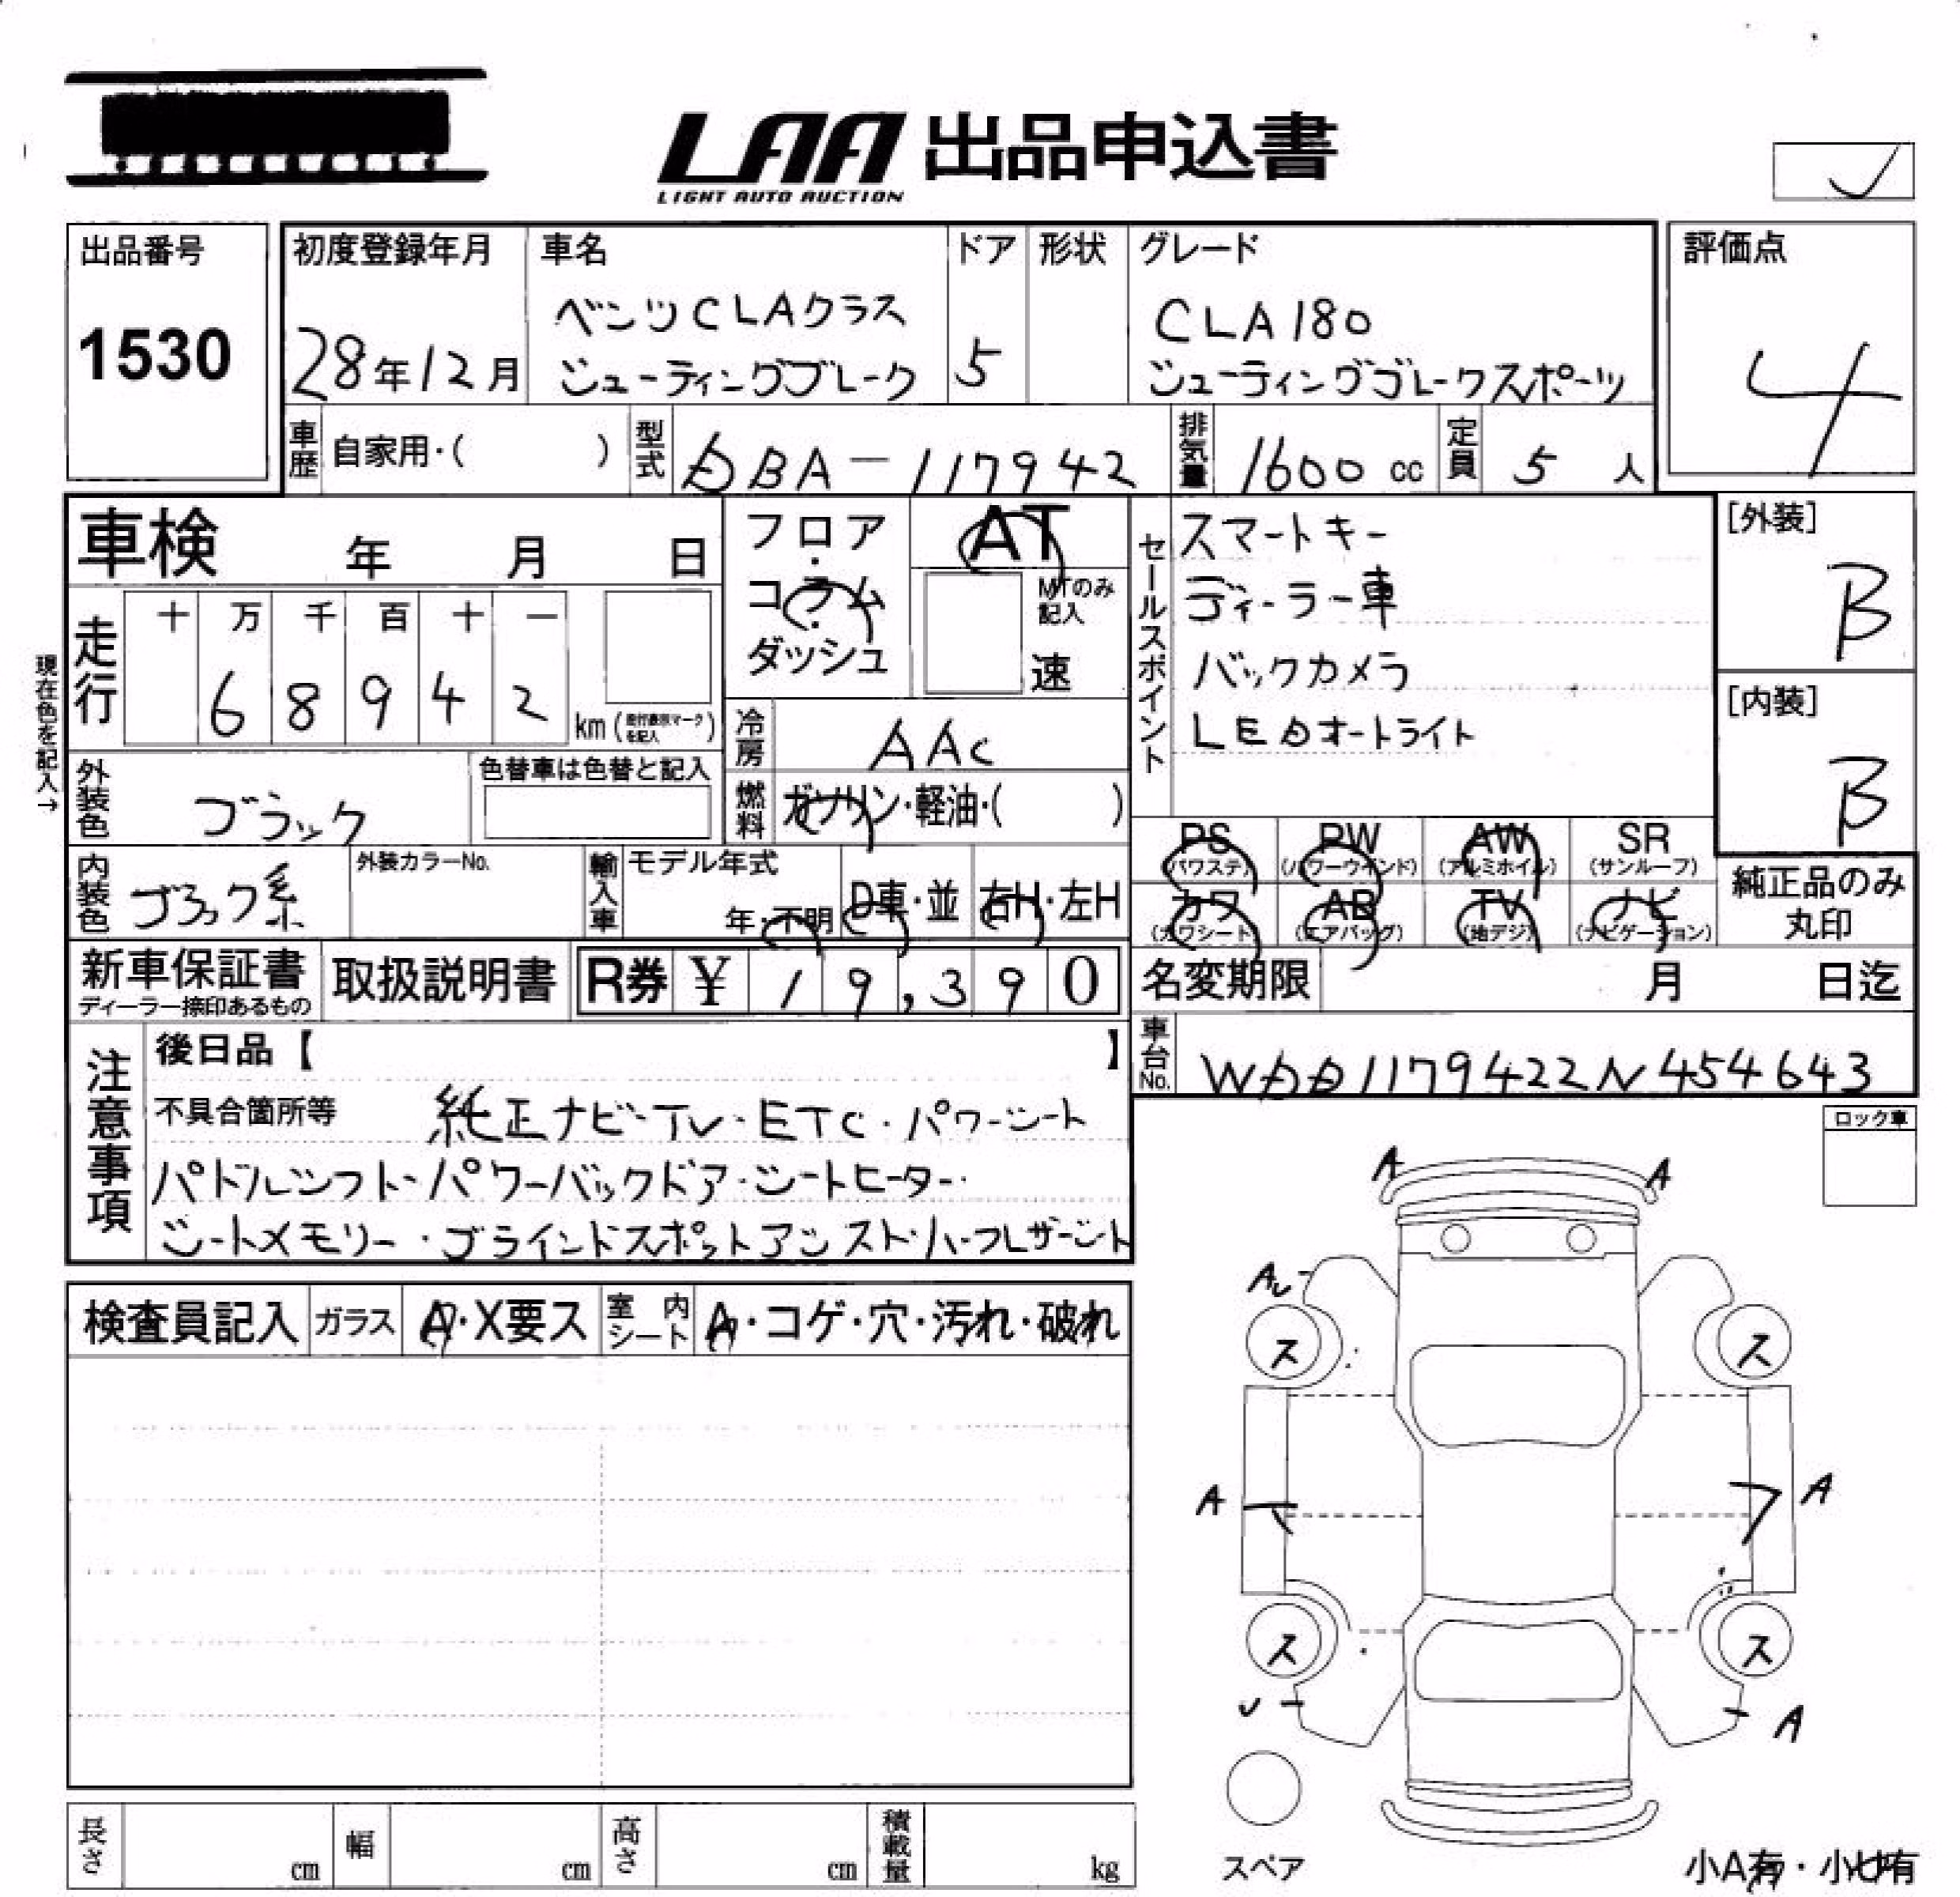 LAA 出品申込書
LIGHT AUTO AUCTION
出品番号
1530
初度登録年月
28年12月
車名
ベンツCLAクラス
シューティングブレーク
ドア
5
形状
グレード
CLA180
シューティングブレークスポーツ
評価点
4
車歴
自家用・( )
型式
DBA-117942
排気量
1600 cc
定員
5 人
車検 年 月 日
フロア・コラム・ダッシュ
AT
MTのみ記入
速
セールスポイント
スマートキー
ディーラー車
バックカメラ
LEDオートライト
[外装]
B
[内装]
B
現在色を記入→
走行
十 万 千 百 十 一
6 8 9 4 2
km (走行表示マークを記入)
冷房
AAC
外装色
ブラック
色替車は色替と記入
燃料
ガソリン・軽油・( )
PS
(パワステ)
PW
(パワーウインド)
AW
(アルミホイル)
SR
(サンルーフ)
カワ
(カワシート)
AB
(エアバッグ)
TV
(地デジ)
ナビ
(ナビゲーション)
純正品のみ
丸印
内装色
ブラック系
外装カラーNo.
輸入車
モデル年式
年・不明
D車・並
右H・左H
新車保証書
ディーラー捺印あるもの
取扱説明書
R券 ¥ 19,390
名変期限 月 日迄
車台No.
WDD1179422N454643
注意事項
後日品【 】
不具合箇所等 純正ナビ-TV・ETC・パワーシート
パドルシフト・パワーバックドア・シートヒーター・
シートメモリー・ブラインドスポットアシスト・ハーフレザーシート
ロック車
検査員記入
ガラス
A・X要ス
室内シート
A・コゲ・穴・汚れ・破れ
A
A
ス
ス
A
A
ス
ス
A
スペア
小A有・小U有
長さ cm
幅 cm
高さ cm
積載量 kg